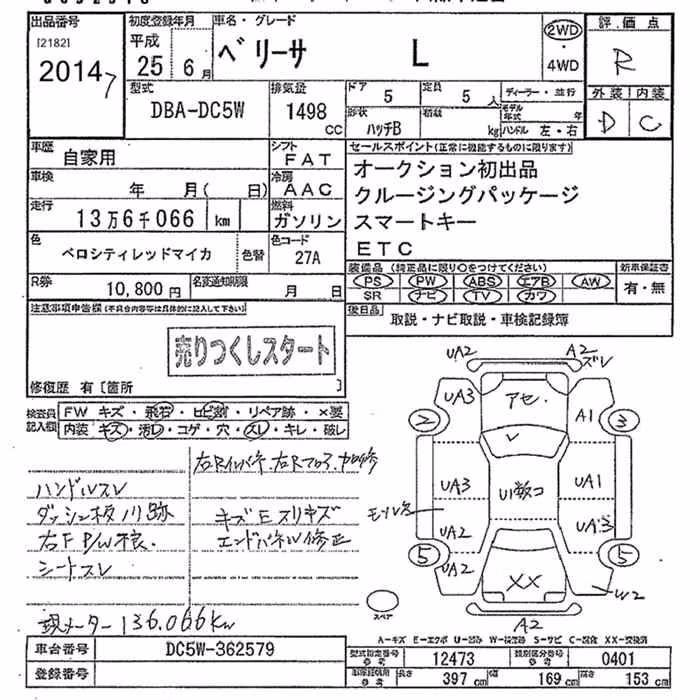 出品番号
[2182]
2014 7
初度登録年月
平成
25 6月
車名・グレード
ベリーサ L
2WD
・
4WD
評価点
R
外装 内装
D C
型式
DBA-DC5W
排気量
1498 CC
ドア 5
定員 5 人
形状 ハッチB
積載 kg
ディーラー・並行
モデル年式 年
ハンドル 左・右
車歴 自家用
シフト FAT
車検 年 月( 日)
冷房 AAC
走行 13万6千066 km
燃料 ガソリン
色 ベロシティレッドマイカ 色替
色コード 27A
R券 10,800 円
名変通知期限 月 日
セールスポイント(正常に機能するものに限ります)
オークション初出品
クルージングパッケージ
スマートキー
ETC
装備品 (純正品に限り○をつけてください)
PS PW ABS エアB AW
SR ナビ TV カワ
新車保証書
有・無
後日品 取説・ナビ取説・車検記録簿
注意事項申告欄(不具合内容等は具体的に記入して下さい)
売りつくしスタート
修復歴 有〔箇所 〕
検査員記入欄
FW キズ・飛石・ヒビ割・リペア跡・×要
内装 キズ・汚レ・コゲ・穴・スレ・キレ・破レ
右Rインパネ、右Rフロア
ハンドルスレ
ダッシュ板ハリ跡
キズEスリキズ
右F P/W不良
エンドパネル修正
シートスレ
現メーター 136,066km
UA2
A2
ズレ
UA3
アセ
A1
2
3
レ
UA3
UA1
U1数コ
モール
UA2
UA3
5
5
UA2
XX
W2
スペア
A2
A-キズ E-エクボ U-凹み W-補修跡 S-サビ C-腐食 XX-交換済
車台番号 DC5W-362579
登録番号
型式指定番号 参考 12473
類別区分番号 参考 0401
長さ 397 cm
幅 169 cm
高さ 153 cm